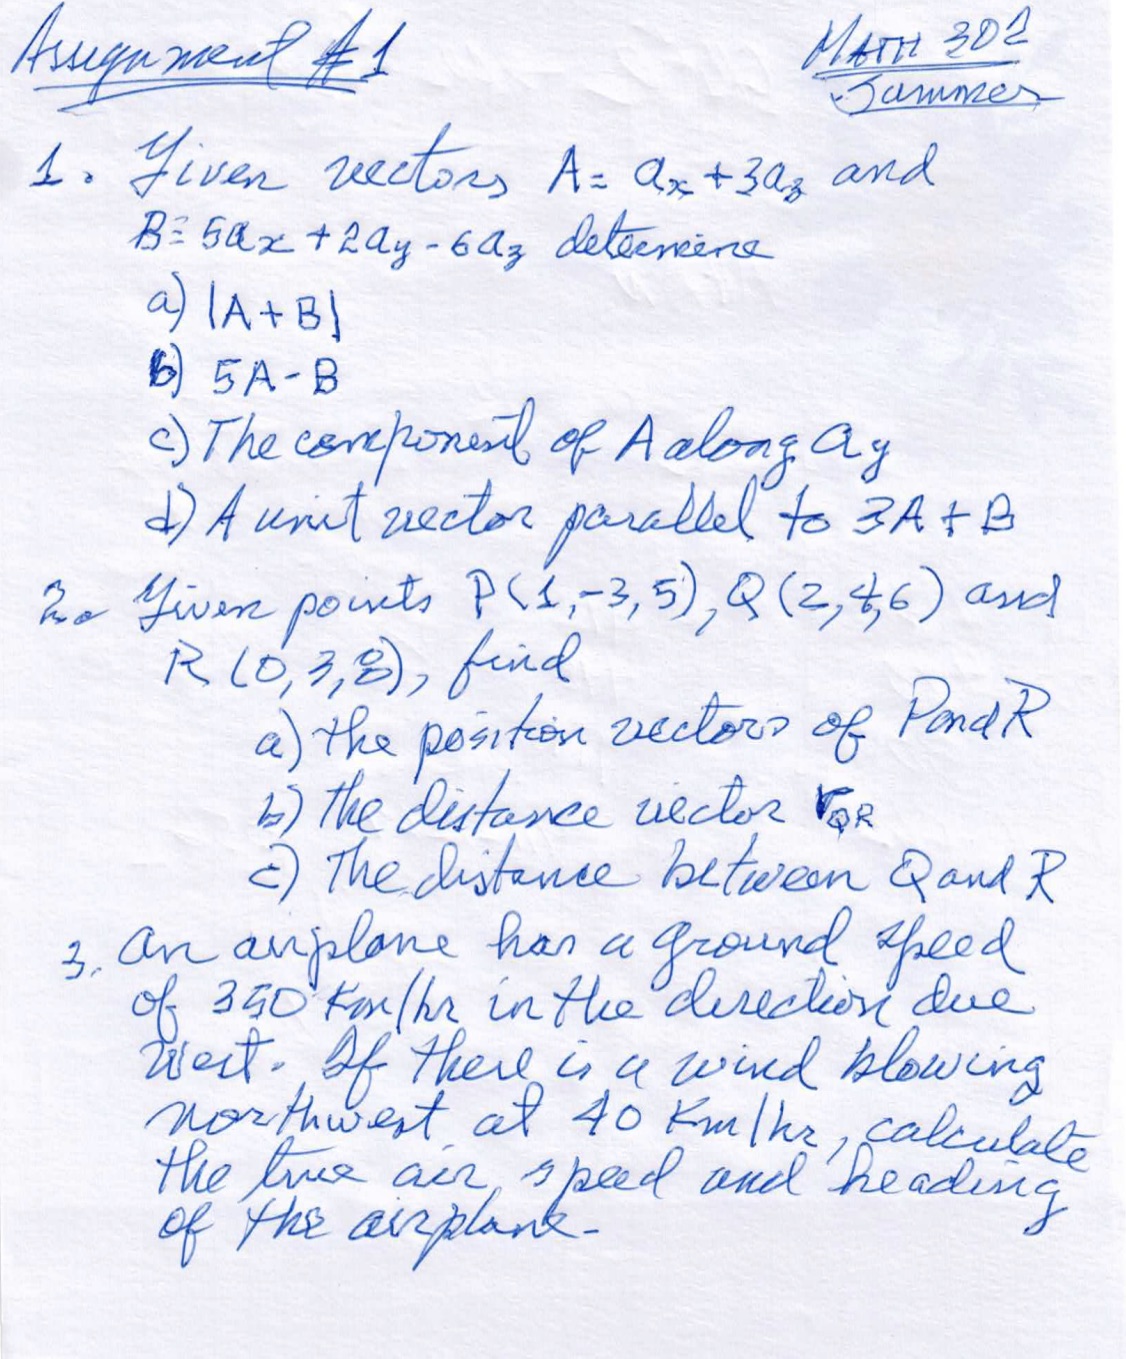 Assignment #1
MATH 302
Summer
1. Given vectors A = ax + 3az and
B = 5ax + 2ay - 6az determine
a) |A+B|
b) 5A-B
c) The component of A along ay
d) A unit vector parallel to 3A + B
2. Given points P(1,-3,5), Q(2,4,6) and
R(0,3,8), find
a) the position vectors of P and R
b) the distance vector rQR
c) The distance between Q and R
3. An airplane has a ground speed
of 350 Km/hr in the direction due
West. If there is a wind blowing
northwest at 40 Km/hr, calculate
the true air speed and heading
of the airplane-